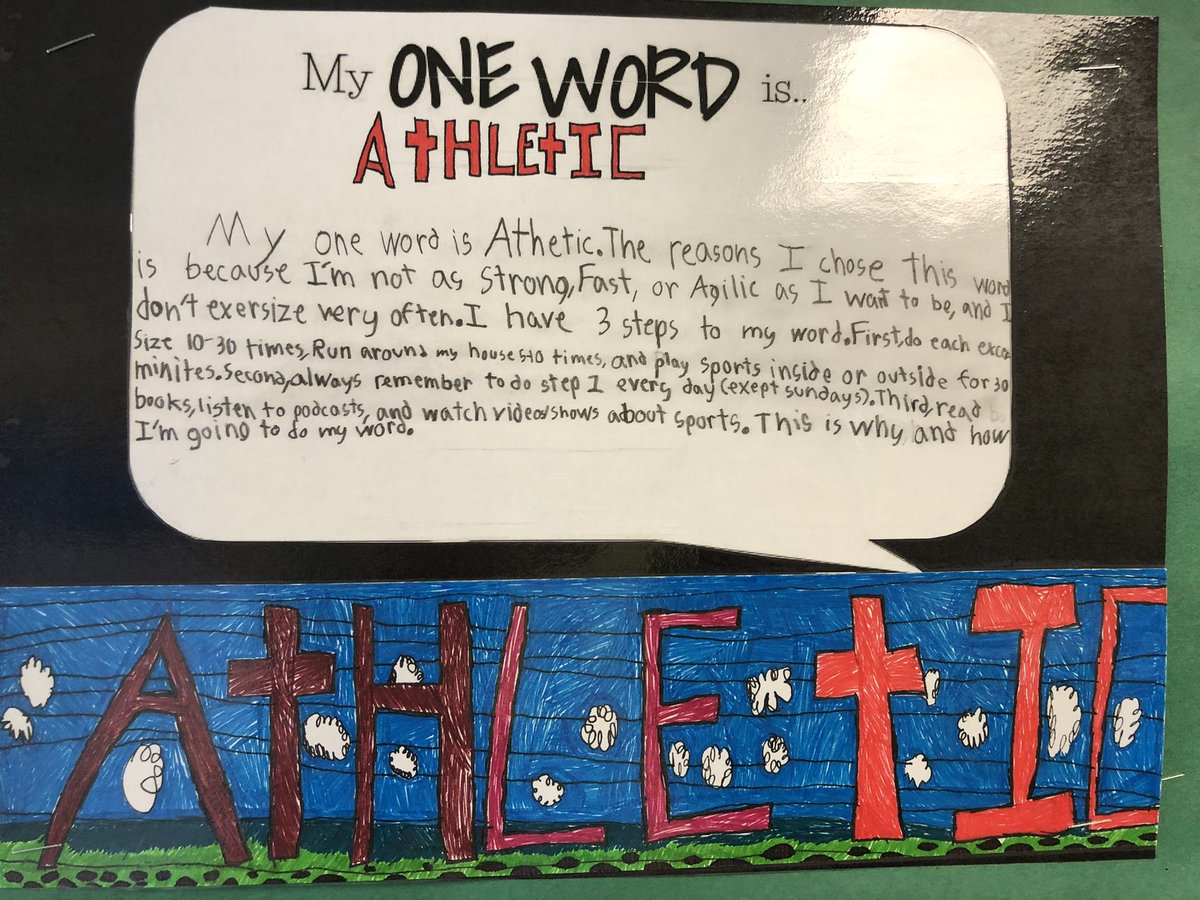 My ONE WORD is..
AtHLEtIC
My one word is Athetic. The reasons I chose this word
is because I'm not as strong, Fast, or Agilic as I want to be, and I
don't exersize very often. I have 3 steps to my word. First, do each excer
size 10-30 times, Run around my house 5-10 times, and play sports inside or outside for 30
minites. Second, always remember to do step 1 every day (exept sundays). Third, read
books, listen to podcasts, and watch videos/shows about sports. This is why and how
I'm going to do my word.
AtHLEtIC